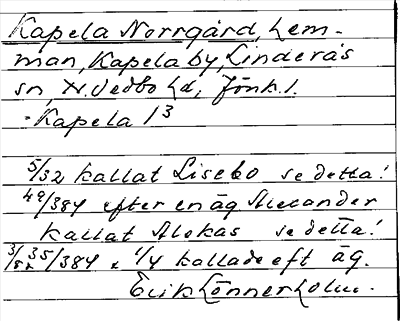 Kapela Norrgård, hem-
man, Kapela by, Linderås
sn, N. Vedbo hd, Jönk. l.
- Kapela 1³
5/32 kallat Lisebo se detta!
49/384 efter en äg Alexander
kallat Alekas se detta!
35/384 1/4 kallade eft äg.
Erik Lönnerholm.